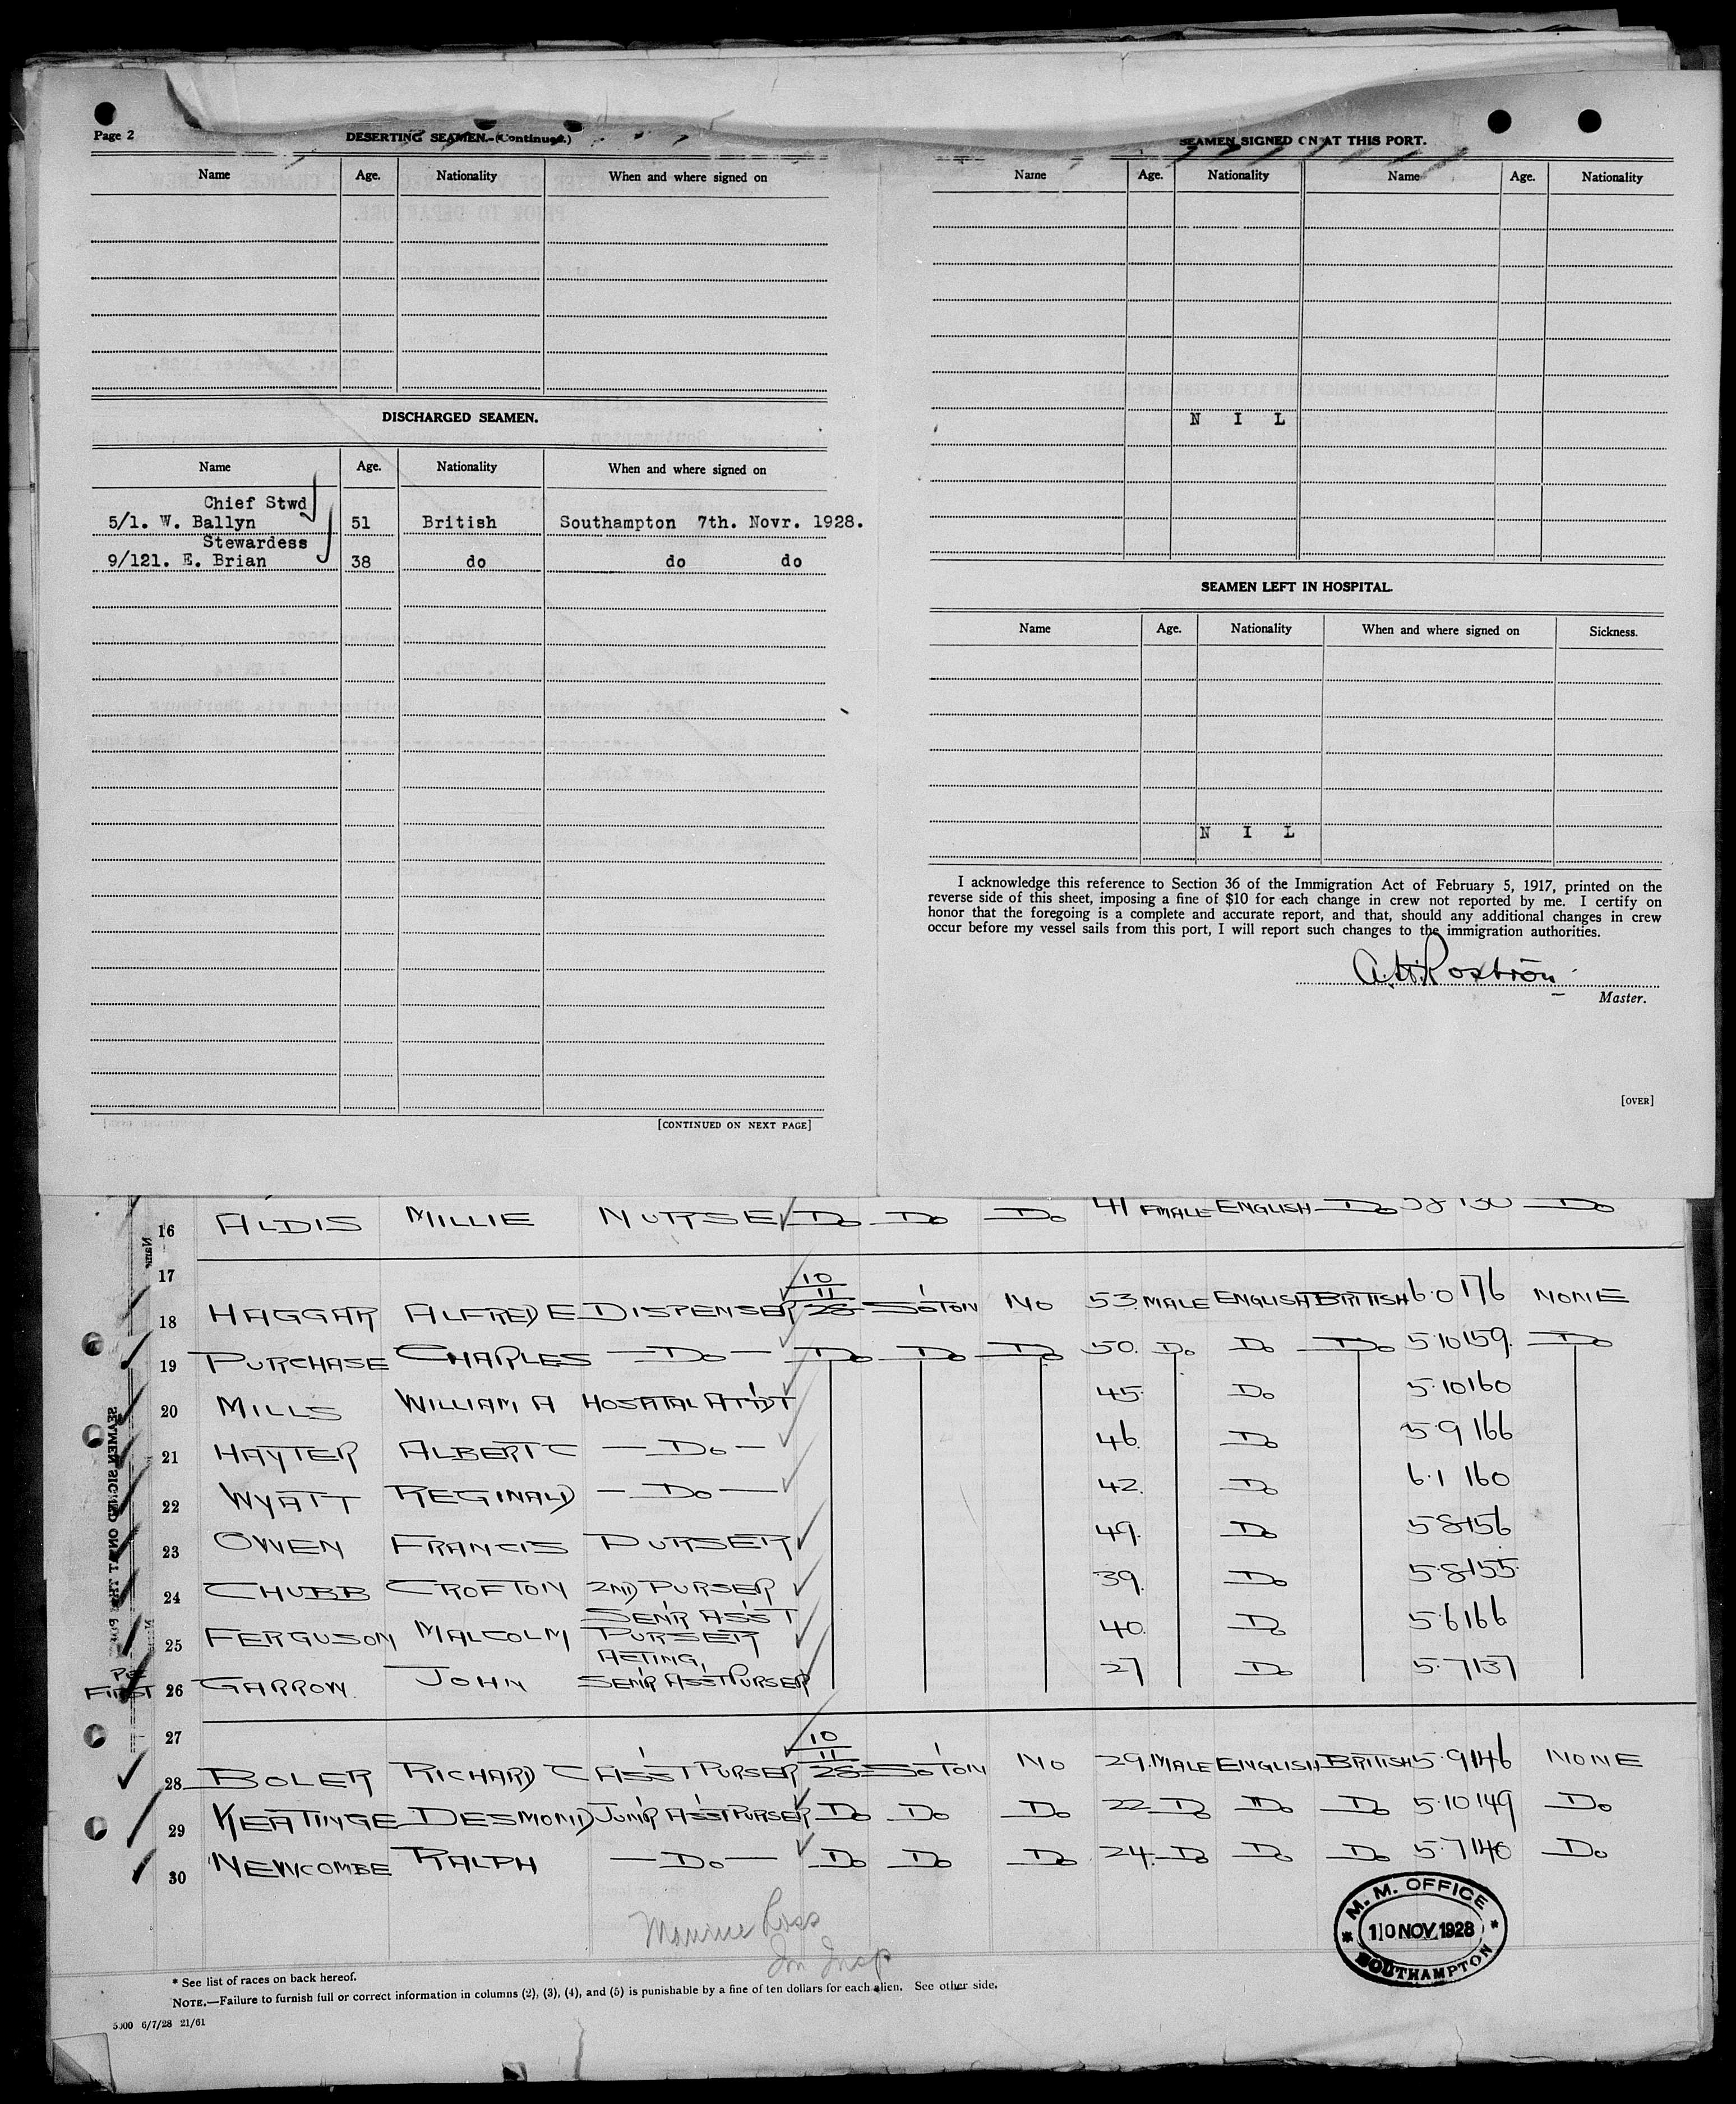 Page 2
DESERTING SEAMEN.-(Continued.)
Name Age. Nationality When and where signed on
DISCHARGED SEAMEN.
Name Age. Nationality When and where signed on
Chief Stwd
5/1. W. Ballyn 51 British Southampton 7th. Novr. 1928.
Stewardess
9/121. E. Brian 38 do do do
[CONTINUED ON NEXT PAGE]
SEAMEN SIGNED ON AT THIS PORT.
Name Age. Nationality Name Age. Nationality
N I L
SEAMEN LEFT IN HOSPITAL.
Name Age. Nationality When and where signed on Sickness.
N I L
I acknowledge this reference to Section 36 of the Immigration Act of February 5, 1917, printed on the
reverse side of this sheet, imposing a fine of $10 for each change in crew not reported by me. I certify on
honor that the foregoing is a complete and accurate report, and that, should any additional changes in crew
occur before my vessel sails from this port, I will report such changes to the immigration authorities.
A.H.Rostron
Master.
[OVER]
16 ALDIS MILLIE NURSE Do Do Do 41 FMALE ENGLISH Do 5 8 130 Do
17
18 HAGGAR ALFRED E DISPENSER 10/11/28 SO'TON NO 53 MALE ENGLISH BRITISH 6.0 176 NONE
19 PURCHASE CHARLES Do Do Do Do 50. Do Do Do 5.10 159. Do
20 MILLS WILLIAM A HOSATAL AT'DT 45. Do 5.10 160
21 HAYTER ALBERT C Do 46. Do 5.9 166
22 WYATT REGINALD Do 42. Do 6.1 160
23 OWEN FRANCIS PURSER 49. Do 5 8 156
24 CHUBB CROFTON 2ND PURSER 39. Do 5.8 155.
25 FERGUSON MALCOLM SEN'R ASS'T PURSER 40. Do 5.6 166
26 GARROW. JOHN ACTING, SEN'R ASS'T PURSER 27 Do 5.7 137
27
28 BOLER RICHARD C ASS'T PURSER 10/11/28 SO'TON NO 29. MALE ENGLISH BRITISH 5.9 146 NONE
29 KEATINGE DESMOND JUN'R ASS'T PURSER Do Do Do 22 Do Do Do 5.10 149 Do
30 NEWCOMBE RALPH Do Do Do Do 24. Do Do Do 5.7 140 Do
Ross
Im Insp
M. M. OFFICE
10 NOV 1928
SOUTHAMPTON
* See list of races on back hereof.
NOTE.—Failure to furnish full or correct information in columns (2), (3), (4), and (5) is punishable by a fine of ten dollars for each alien. See other side.
5000 6/7/28 21/61